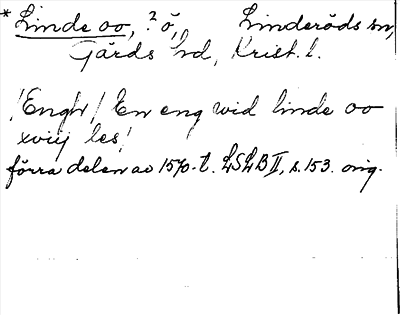 * Linde oo, ? ö, Linderöds sn,
Gärds hd, Krist. l.
! Engh / En eng wid linde oo
xviij les!
förra delen av 1570-t. LSLB II, s. 153. orig.